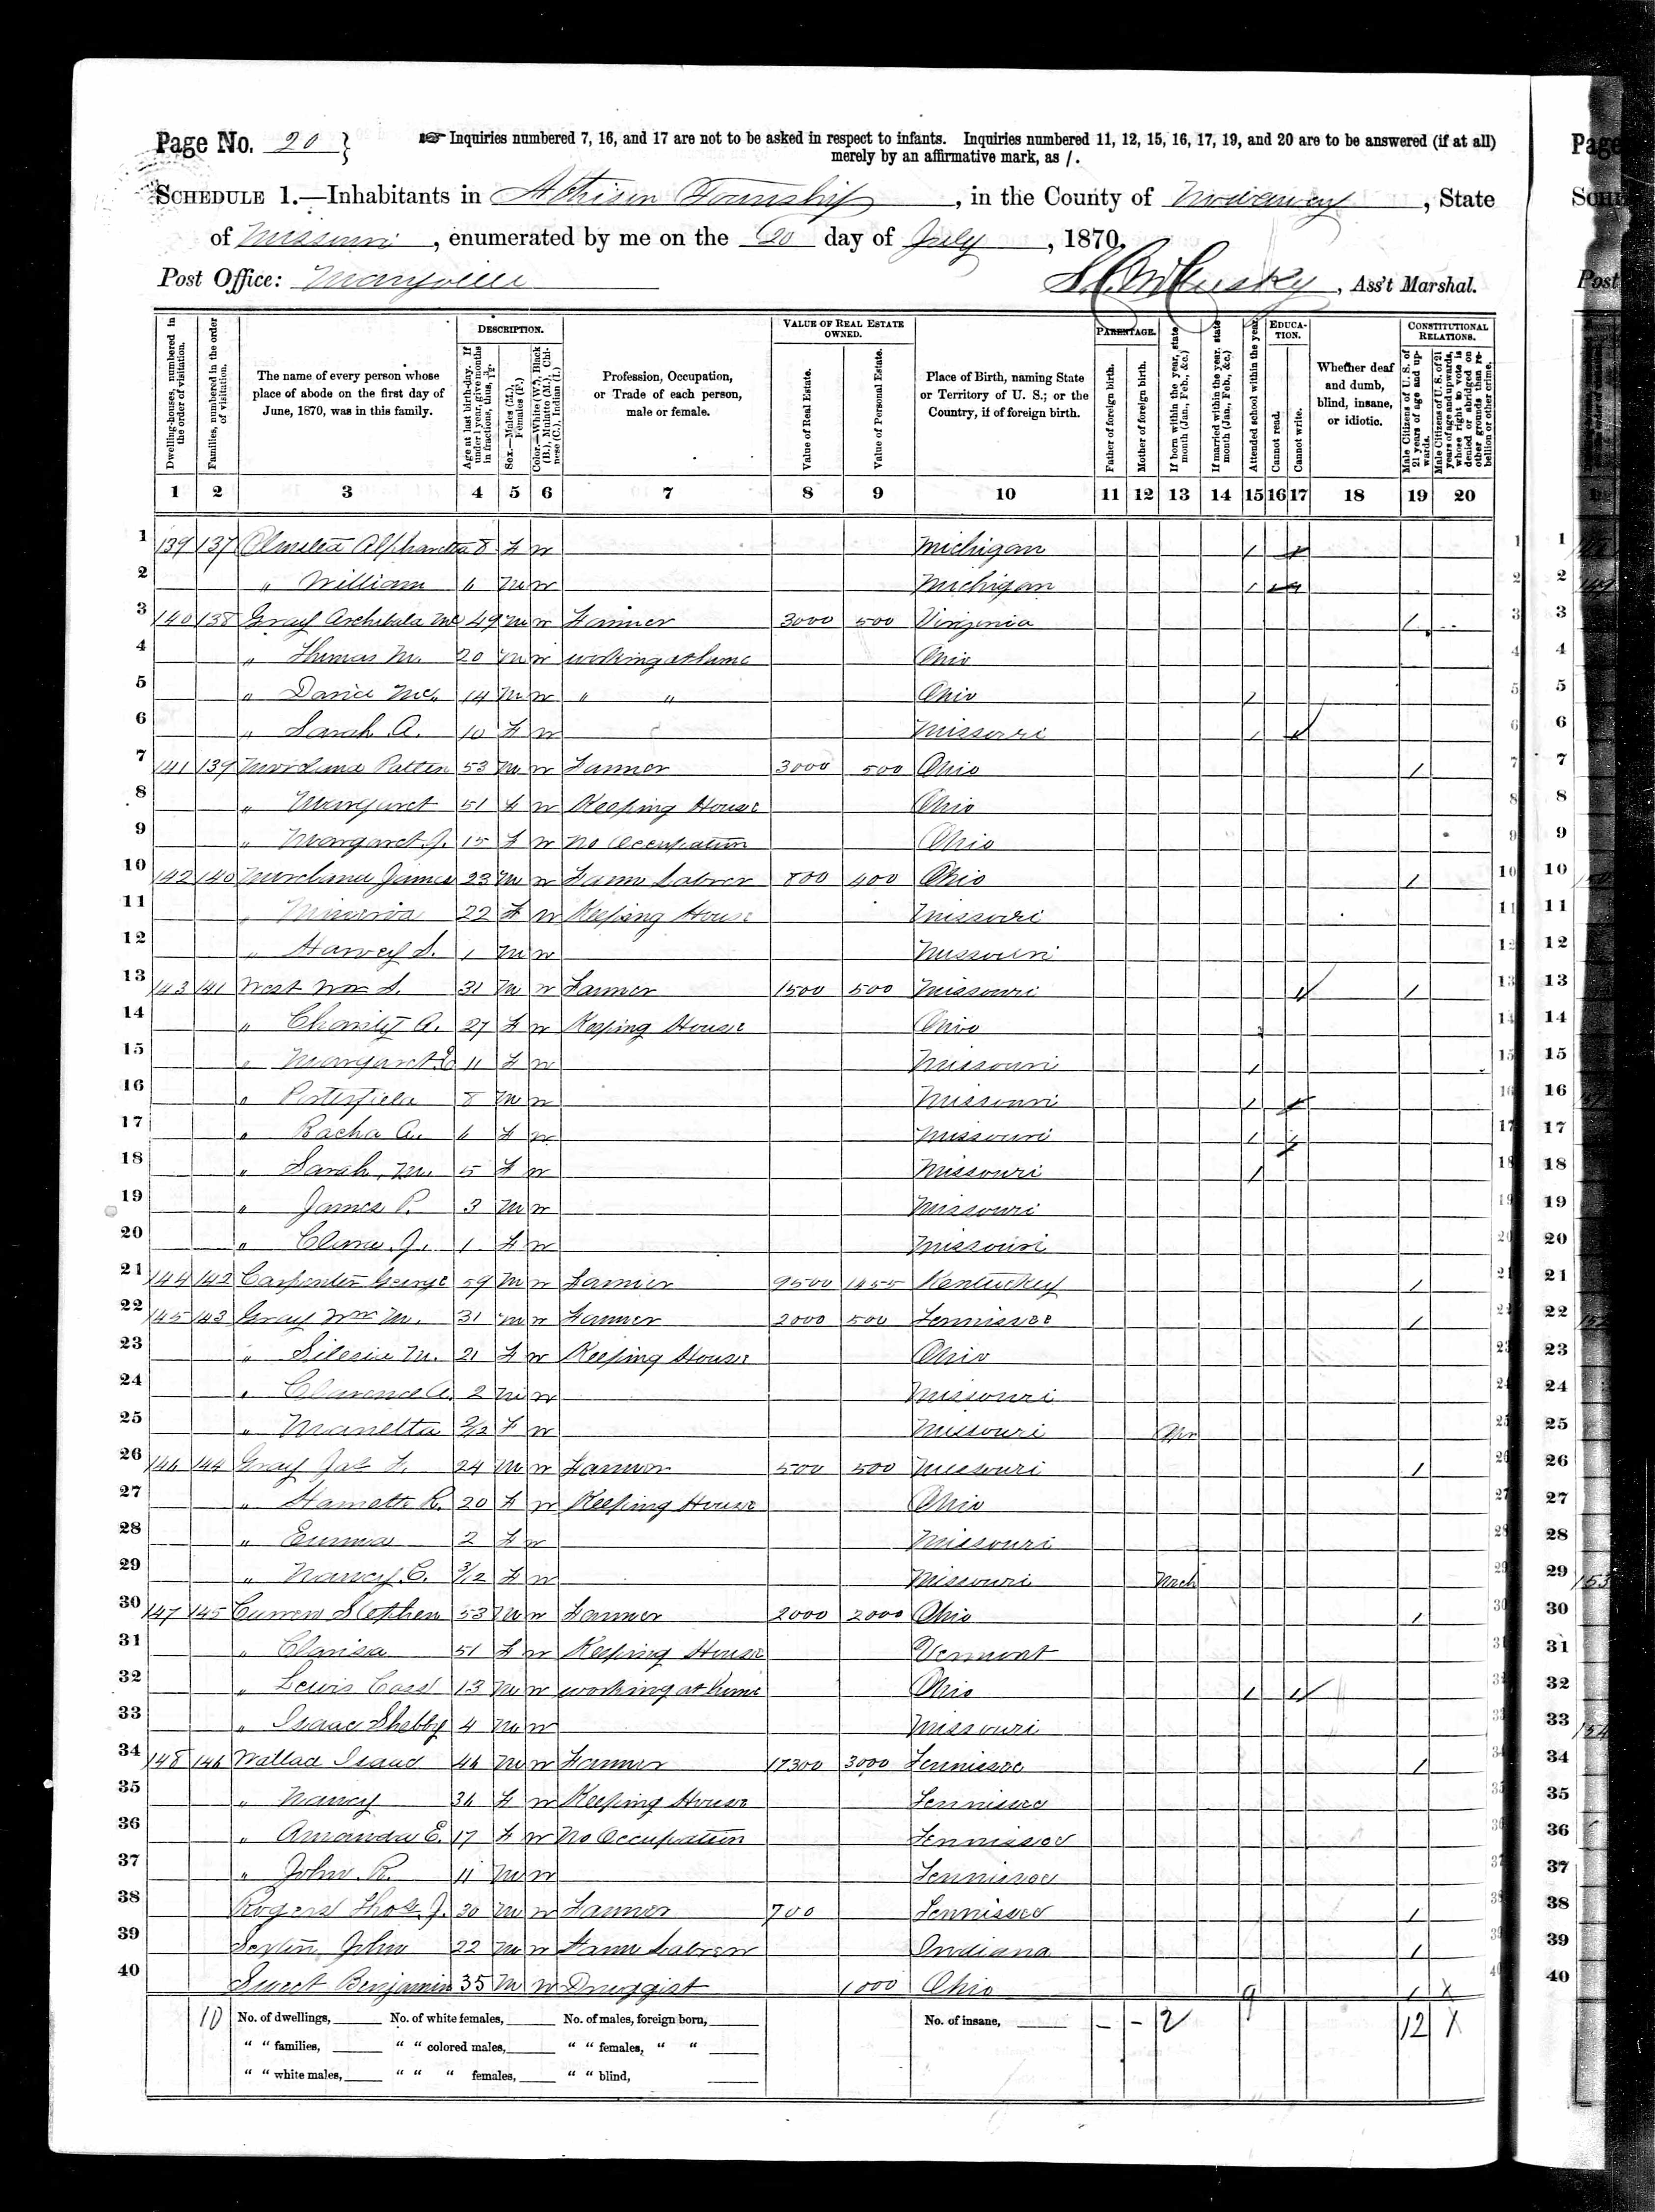 Page No. 20 }
☞ Inquiries numbered 7, 16, and 17 are not to be asked in respect to infants. Inquiries numbered 11, 12, 15, 16, 17, 19, and 20 are to be answered (if at all)
merely by an affirmative mark, as /.
SCHEDULE 1.—Inhabitants in Athison Township, in the County of Nodaway, State
of Missouri, enumerated by me on the 20 day of July, 1870.
Post Office: Maryville
, Ass't Marshal.
Dwelling-houses, numbered in the order of visitation.
Families, numbered in the order of visitation.
The name of every person whose place of abode on the first day of June, 1870, was in this family.
DESCRIPTION.
Age at last birth-day. If under 1 year, give months in fractions, thus, 3/12.
Sex.—Males (M.), Females (F.)
Color.—White (W.), Black (B.), Mulatto (M.), Chinese (C.), Indian (I.)
Profession, Occupation, or Trade of each person, male or female.
VALUE OF REAL ESTATE OWNED.
Value of Real Estate.
Value of Personal Estate.
Place of Birth, naming State or Territory of U. S.; or the Country, if of foreign birth.
PARENTAGE.
Father of foreign birth.
Mother of foreign birth.
If born within the year, state month (Jan., Feb., &c.)
If married within the year, state month (Jan., Feb., &c.)
Attended school within the year.
EDUCATION.
Cannot read.
Cannot write.
Whether deaf and dumb, blind, insane, or idiotic.
CONSTITUTIONAL RELATIONS.
Male Citizens of U. S. of 21 years of age and upwards.
Male Citizens of U. S. of 21 years of age and upwards, whose right to vote is denied or abridged on other grounds than rebellion or other crime.
1 2 3 4 5 6 7 8 9 10 11 12 13 14 15 16 17 18 19 20
1 139 137 8 F W Michigan / / 1
2 " William 6 M W Michigan / / 2
3 140 138 Gray Archibald Mc 49 M W Farmer 3000 500 Virginia / 3
4 " Thomas M. 20 M W working at home Ohio 4
5 " David Mc. 14 M W " " Ohio / 5
6 " Sarah A. 10 F W Missouri / / 6
7 141 139 Moreland Patten 53 M W Farmer 3000 500 Ohio / 7
8 " Margaret 51 F W Keeping House Ohio 8
9 " Margaret J. 15 F W No Occupation Ohio 9
10 142 140 Moreland James 23 M W Farm Laborer 800 400 Ohio / 10
11 " Minerva 22 F W Keeping House Missouri 11
12 " Harvey S. 1 M W Missouri 12
13 143 141 West Wm S. 31 M W Farmer 1500 500 Missouri / / 13
14 " Charity A. 27 F W Keeping House Ohio 14
15 " Margaret E 11 F W Missouri / 15
16 " Porterfield 8 M W Missouri / / 16
17 " Racha A. 6 F W Missouri / / 17
18 " Sarah, M. 5 F W Missouri / 18
19 " James P. 3 M W Missouri 19
20 " J. 1 F W Missouri 20
21 144 142 Carpenter George 59 M W Farmer 9500 1455 Kentucky / 21
22 145 143 Gray Wm M. 31 M W Farmer 2000 500 Tennissee / 22
23 " M. 21 F W Keeping House Ohio 23
24 " Clarence A. 2 M W Missouri 24
25 " Manetta F W Missouri Apr 25
26 146 144 Gray Jas F. 24 M W Farmer 500 500 Missouri / 26
27 " R. 20 F W Keeping House Ohio 27
28 " Emma 2 F W Missouri 28
29 " Nancy C. 3/12 F W Missouri Mch 29
30 147 145 Curren Stephen 53 M W Farmer 2000 2000 Ohio / 30
31 " Clarisa 51 F W Keeping House Vermont 31
32 " Lewis Cass 13 M W working at home Ohio / / 32
33 " Isaac Shelby 4 M W Missouri 33
34 148 146 Wallace 46 M W Farmer 17300 3000 Tennissee / 34
35 " Nancy 36 F W Keeping House Tennissee 35
36 " Amanda E. 17 F W No Occupation Tennissee 36
37 " John R. 11 M W Tennissee 37
38 Rogers Thos. J. 30 M W Farmer 700 Tennissee / 38
39 John 22 M W Farm Laborer Indiana / 39
40 Sweet Benjamin 35 M W Druggist 1000 Ohio 9 / X 40
10 No. of dwellings, No. of white females, No. of males, foreign born, No. of insane, – – 2 12 X
" " families, " " colored males, " " females, " "
" " white males, " " " females, " " blind,